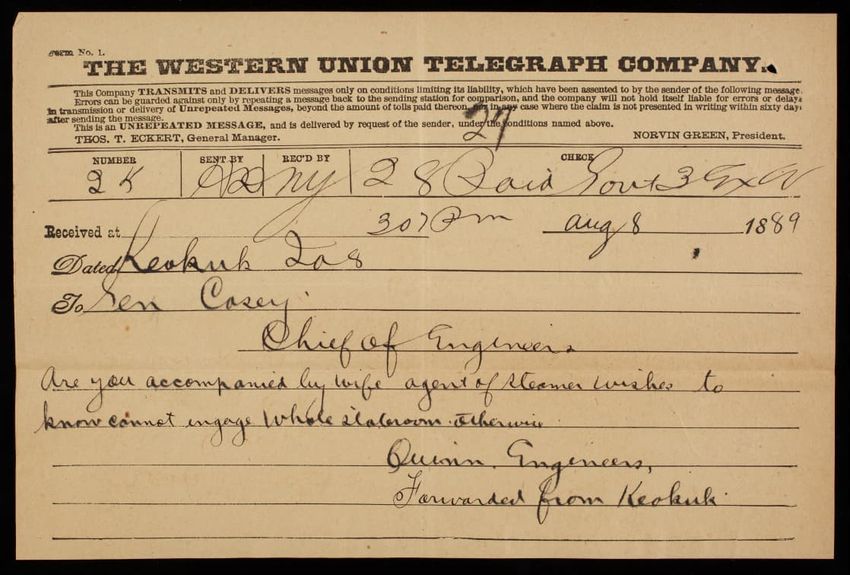 Form No. 1.
THE WESTERN UNION TELEGRAPH COMPANY.
This Company TRANSMITS and DELIVERS messages only on conditions limiting its liability, which have been assented to by the sender of the following message.
Errors can be guarded against only by repeating a message back to the sending station for comparison, and the company will not hold itself liable for errors or delays
in transmission or delivery of Unrepeated Messages, beyond the amount of tolls paid thereon, nor in any case where the claim is not presented in writing within sixty days
after sending the message.
This is an UNREPEATED MESSAGE, and is delivered by request of the sender, under the conditions named above.
27
THOS. T. ECKERT, General Manager. NORVIN GREEN, President.
NUMBER SENT BY REC'D BY CHECK
2 K ny 28 Paid Govt 3
Received at 307 Pm aug 8 1889
Dated Keokuk Ia 8
To Gen Casey
Chief of Engineers
Are you accompanied by wife agent of steamer wishes to
know cannot engage whole stateroom otherwise
Quinn. Engineers,
Forwarded from Keokuk